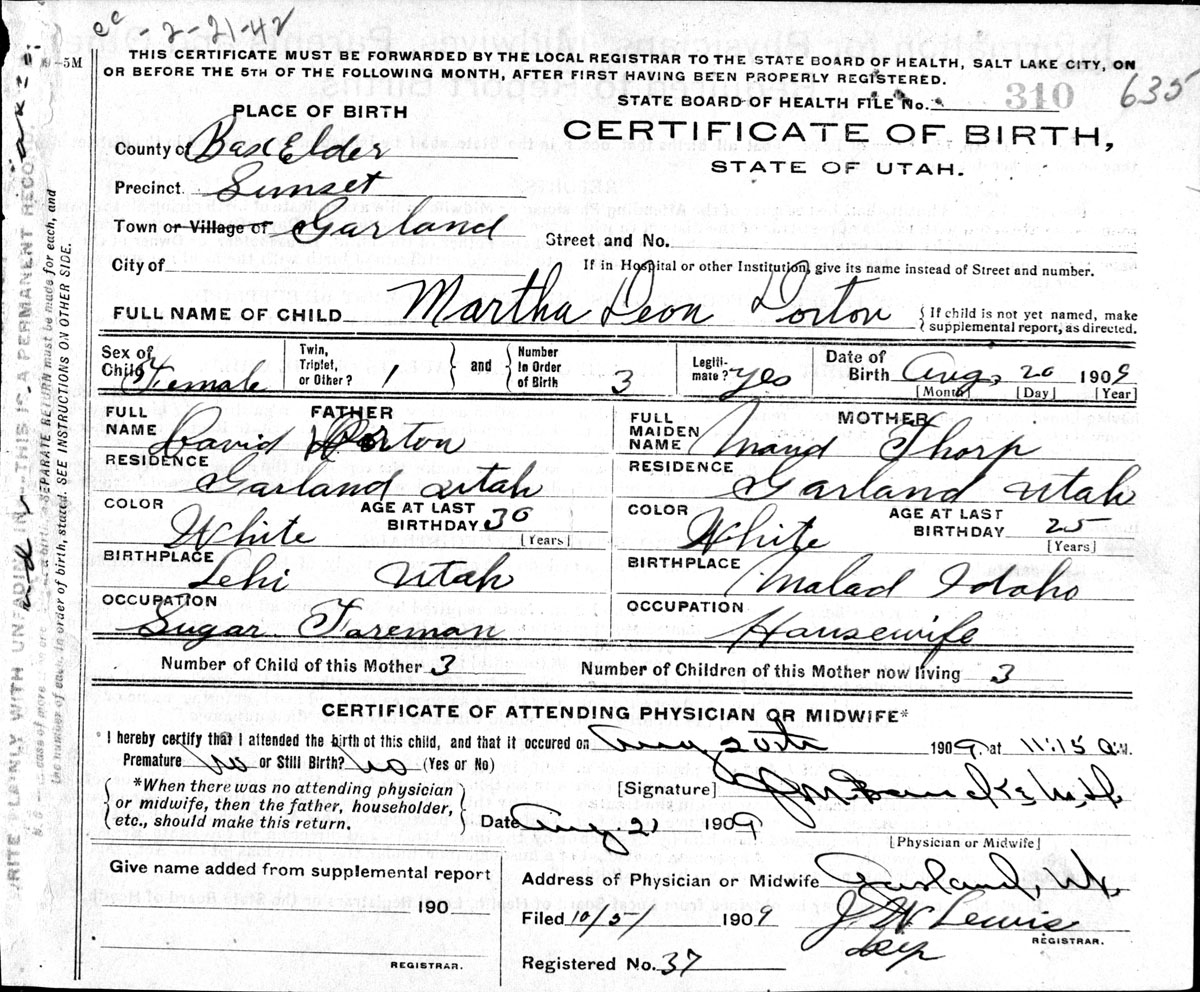 ec - 2-21-42
9-5M THIS CERTIFICATE MUST BE FORWARDED BY THE LOCAL REGISTRAR TO THE STATE BOARD OF HEALTH, SALT LAKE CITY, ON
OR BEFORE THE 5TH OF THE FOLLOWING MONTH, AFTER FIRST HAVING BEEN PROPERLY REGISTERED.
STATE BOARD OF HEALTH FILE No. 310 635
PLACE OF BIRTH
CERTIFICATE OF BIRTH,
STATE OF UTAH.
County of Box Elder
Precinct Sunset
Town or Village of Garland
Street and No.
City of
If in Hospital or other Institution, give its name instead of Street and number.
FULL NAME OF CHILD Martha Deon Dorton { If child is not yet named, make supplemental report, as directed.
Sex of Child Female Twin, Triplet, or Other? 1 } and { Number In Order of Birth 3 Legiti-mate? yes Date of Birth Aug. 20 1909
[Month] [Day] [Year]
FULL NAME FATHER David Dorton
FULL MAIDEN NAME MOTHER Maud Thorp
RESIDENCE Garland Utah
RESIDENCE Garland Utah
COLOR White AGE AT LAST BIRTHDAY 30 [Years]
COLOR White AGE AT LAST BIRTHDAY 25 [Years]
BIRTHPLACE Lehi Utah
BIRTHPLACE Malad Idaho
OCCUPATION Sugar Foreman
OCCUPATION Housewife
Number of Child of this Mother 3 Number of Children of this Mother now living 3
CERTIFICATE OF ATTENDING PHYSICIAN OR MIDWIFE*
I hereby certify that I attended the birth of this child, and that it occured on Aug 20th 1909 at 11:15 a.M.
Premature No or Still Birth? No (Yes or No)
{ *When there was no attending physician or midwife, then the father, householder, etc., should make this return. }
[Signature]
Date Aug. 21 1909
[Physician or Midwife]
Give name added from supplemental report
190
REGISTRAR.
Address of Physician or Midwife Garland, Ut.
Filed 10/5/ 1909 J. W. Lewis
REGISTRAR.
Dep
Registered No. 37
WRITE PLAINLY WITH UNFADING INK—THIS IS A PERMANENT RECORD
SEPARATE RETURN must be made for each, and
the number of each, in order of birth, stated. SEE INSTRUCTIONS ON OTHER SIDE.